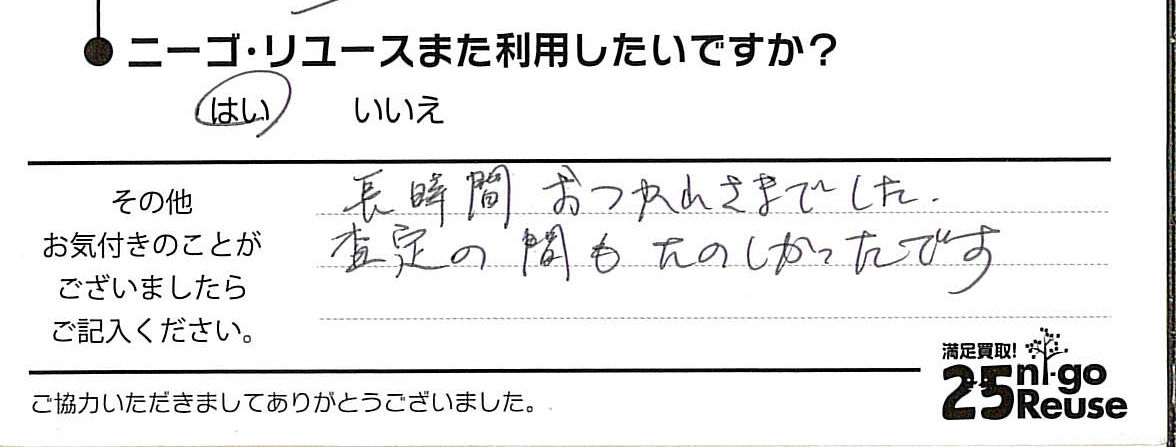 ニーゴ・リユースまた利用したいですか?
はい いいえ
その他
お気付きのことが
ございましたら
ご記入ください。
長時間 おつかれさまでした.
査定の間も たのしかったです
満足買取!
25 ni-go
Reuse
ご協力いただきましてありがとうございました。